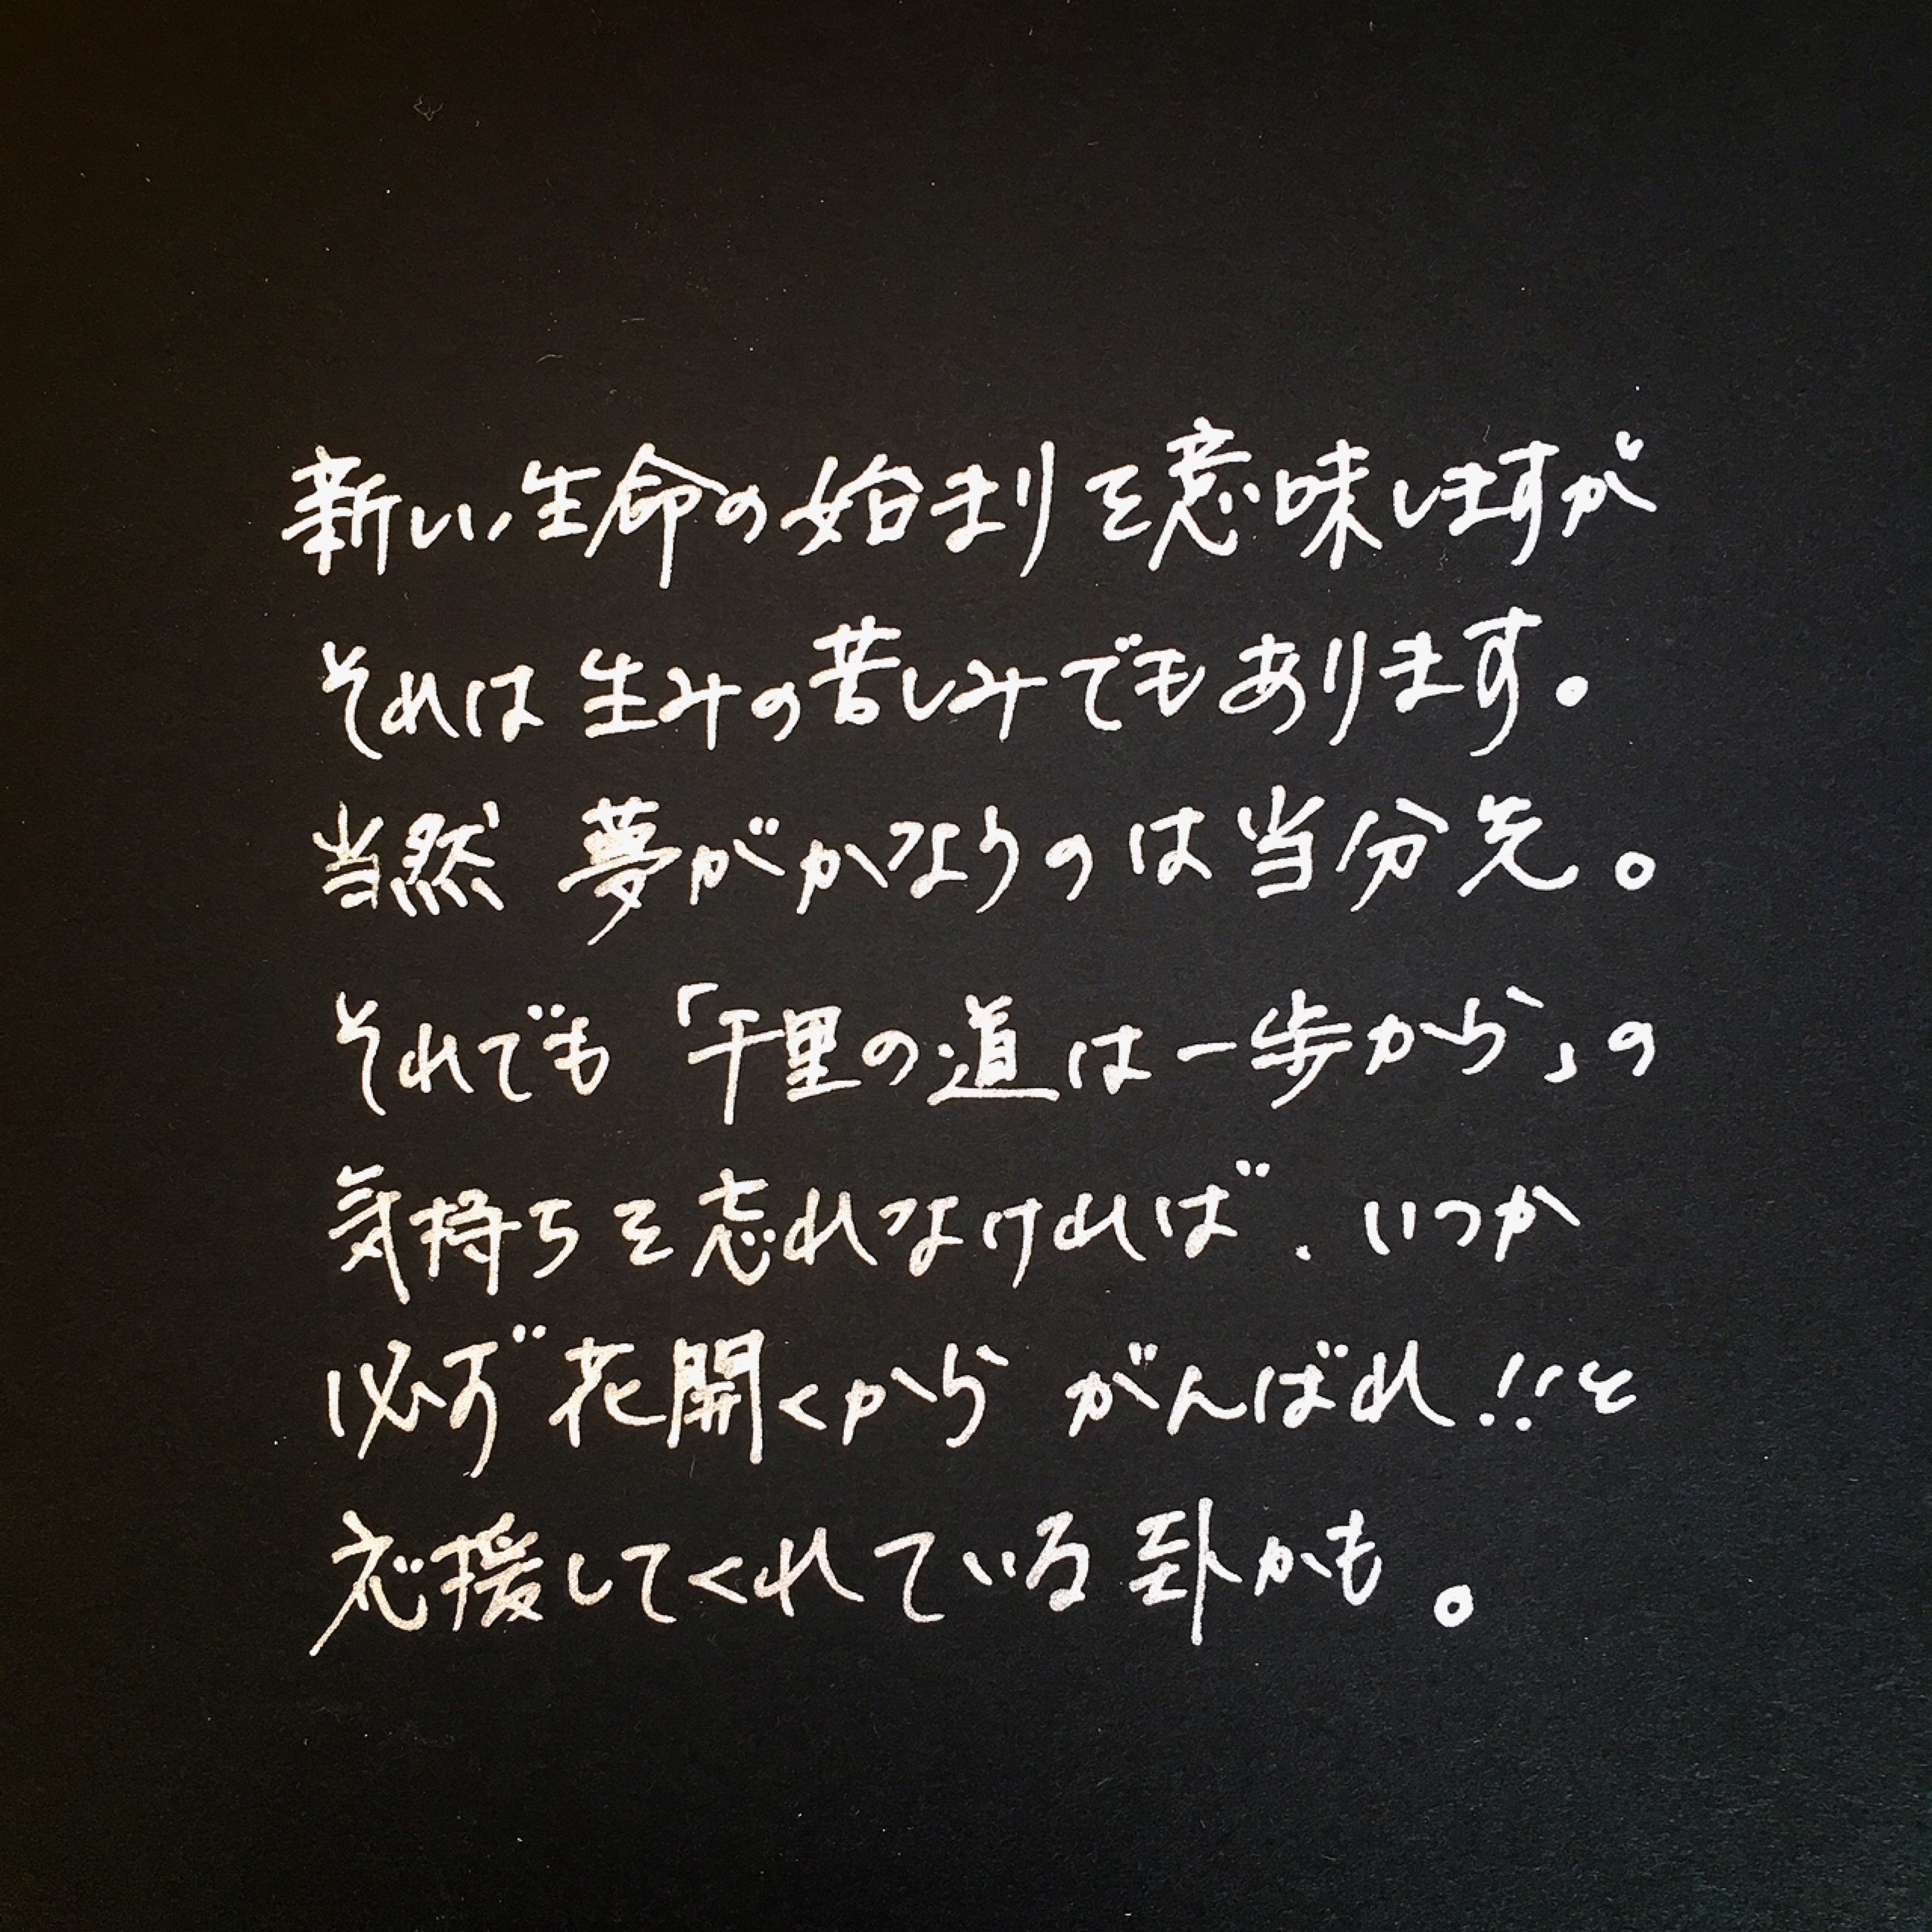 新い生命の始まりを意味しますが
それは生みの苦しみでもあります。
当然 夢がかなうのは当分先。
それでも「千里の道は一歩から」の
気持ちを忘れなければ、いつか
必ず花開くから がんばれ!!と
応援してくれている卦かも。